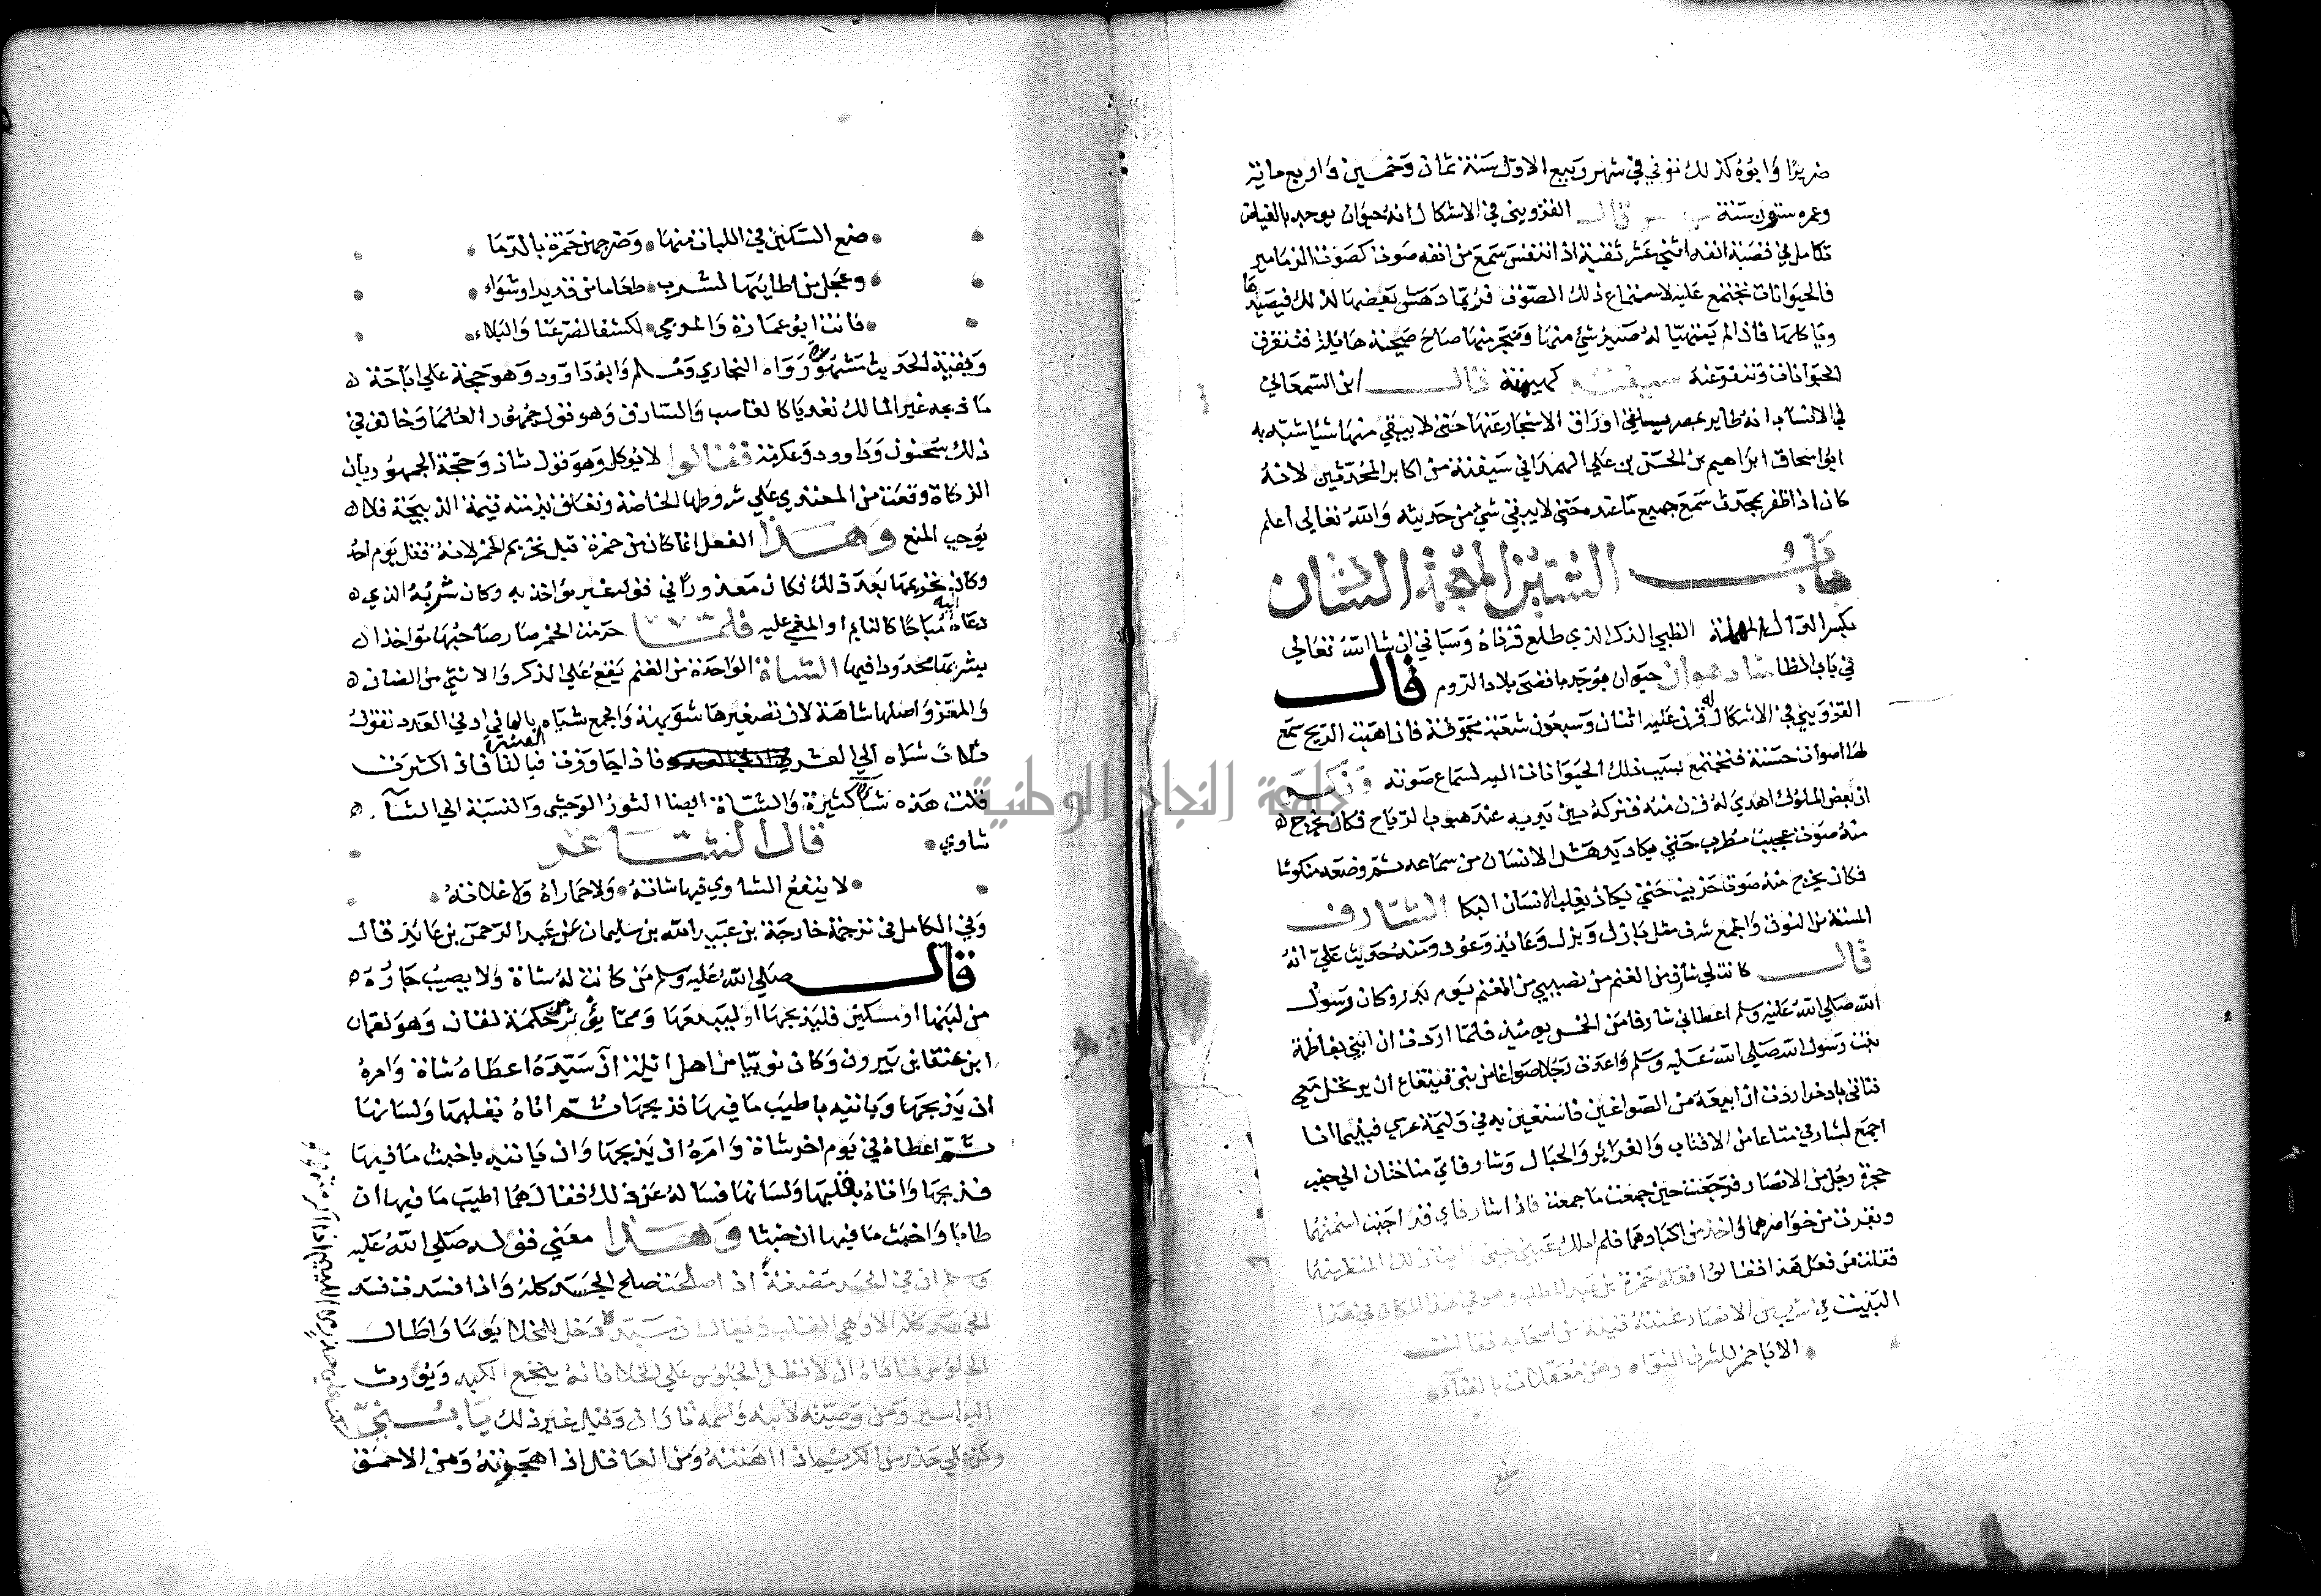 ضريرًا وَابُوهُ كذلك توفي في شهر ربيع الاول سَنة ثمان وَخمسين وَاربع ماية
وعمره ستون سَنة قال القزويني في الاشكال انه حيوان يوجد بالغياض
تكامل في قصَبة انفه اثني عشر ثقبة اذا تنفسَ سمعَ من انفه صَوت كصَوت المزامير
فالحيَوانات تجتمع عَليه لاستماع ذلك الصَّوت فربما دهش بعضها لذلك فيصَيدها
وياكلها فاذا لم يتهيّا له صَيد شئ منها وَضجر منها صَاح صَيحة هَايلة فتتفرق
الحيَوانات وَتنفر عنه سيفنة كهيئة قال ابن السّمعَاني
في الانسَاب انه طاير بمصر يسلخ اوراق الاشجار عنها حَتى لا يبقي منها شيا شبه به
ابوا سحاق ابراهيم بن الحسَن بن علي الهمداني سَيفنة من اكابر المحدّثين لانهُ
كان اذا ظفر بمحدث سَمعَ جميع مَا عنده حَتى لا يبقي شئ من حَديثه وَاللهُ تعَالي اعلم
بَابُ الشين المعجمة الشادن
بكسر الدال المهملة الظبي الذكر الذي طلع قرناه وَسَياتي ان شا الله تعَالي
في بَاب الظا شادهوار حيَوان يوجَد باقصَى بلاد الرّوم قال
القزويني في الاشكال له قرن عَليه اثنتان وَسبعون شعبَة مجوّفة فاذا هبّت الريح سمعَ
لهَا اصوات حسَنة فتجتمع بسبب ذلك الحيَوانات اليه لسَماع صَوته وَذكر
ان بعض الملوك اهدي لهُ قرن منه فتركهُ بين يديه عند هبوب الرّياح فكان يخرج
منهُ صَوت عجيب مُطرب حَتي يكاد يدهَش الانسَان من سمَاعه ثم وضعه منكوسًا
فكان يخرج منه صَوت حَزين حَتي يكاد يغلب الانسَان البكا الشّارف
المسنة من النوق وَالجمع شرف مثل بَازل وَبزل وعَائذ وَعُوذ ومنهُ حَديث علي انهُ
قال كانت لي شارف من الغنم من نصيبي من المغنم يَوم بَدر وكان رَسول
الله صَلي الله عَليه وسلم اعطاني شارفا من الخمس يوميذ فلمّا اردت ان ابني بفاطمة
بنت رسول الله صَلي اللهُ عَليه وسلم وَاعدت رَجُلا صَواغا من بني قينقاع ان يرتحل مَعي
فناتي باذخر اردت ان ابيعهُ من الصّواغين فاستعين به في وَليمة عرسي فبينما انا
اجمَع لشارفي متاعا من الاقتاب وَالغرائر وَالحبَال وَشارفايَ مناخان الي جنب
حجرة رجُل من الانصَار فرجَعت حين جمعت ما جمعت فاذا شارفاي قد اجبّت اسنمتهما
وبقرت من خواصرهما وَاخذ من اكبادهما فلم املك عَيني حين رايت ذلك المنظر منهُمَا
فقلت مَن فعَل هَذا فقالوا فعَلهُ حَمزة بن عَبد المطلب وهو في هذا المكان في هَذا
البَيت في شرب من الانصَار غنّتهُ قينة من اصحَابه فقالت
الا يا حَمز للشرف النوَاء وَهنّ مُعقلات بالفنآءِ
ضع السكين في اللبات منها وَضرجهن حمزة بالدّمَا
وعَجل من اطايبها لشرب طعَاما من قديد اوشوَاء
فانت ابو عمَارة وَالمرجي لكشف الضر عَنا وَالبلاء
وَبقية الحَديث مَشهور رَوَاه البخاري وَمُسلم وَابودَاوود وَهو حجة علي ابَاحَة
مَا ذبحه غير المالك تعَديا كالغاصب وَالسّارق وَهو قول جمهُور العُلمَا وَخالف في
ذلك سحنون وَدَاوود وَعكرمة فقالوا لا يوكل وَهوَ قول شاذ وَحجّة الجمهُور بان
الذكاة وَقعَت من المعتدي عَلي شروطها الخاصَة وتعَلق بذمته قيمة الذبيحَة فلا
يوَجب المنع وَهَذا الفعل انما كان من حمزة قبل تحريم الخمر لانهُ قتل يَوم احُد
وكان تحريمها بَعد ذلك فكان مَعذورًا في قوله غير مؤاخذ به وكان شربُهُ الذي
دعَاه اليه مُباحًا كالنايم او المغمي عليه فلمّا حرّمت الخمر صَار صَاحبُهَا مؤاخذا
بشربها محدُودا فيها الشاة الوَاحدة من الغنم يَقعُ عَلي الذكر وَالانثي من الضان
وَالمعز وَاصلها شاهَة لان تصغيرهَا شوَيهة وَالجمع شيَاه بالهاء في ادني العَدد تقولُ
ثلاث شيَاه الي العشر فاذا جَاوَزت العشرة فبالتا فاذا كثرَت
قلت هَذه شآءٌ كثيرة وَالشاة ايضا الثورُ الوَحشي وَالنسبَة الي الشآءِ
شاوي قال الشاعر
لا ينفعُ الشاوي فيها شاتهُ وَلا حمَاراهُ وَلا عَلاتهُ
وَفي الكامل في ترجمة خارجَة بن عَبد الله بن سليمان عَن عَبد الرَّحمن بن عَائذ قال
قال صَلي اللهُ عَليه وَسلم مَن كانت لهُ شاة وَلا يصيبُ جَارُه
من لبَنهَا او مسكين فليذبحهَا او ليبيعهَا وَممّا يؤثر من حكمَة لقمان وَهو لقمان
ابن عنقا بن بَيرون وَكان نوبيّا من اهل ايلة انّ سَيّدهُ اعطاهُ شاة وَامرهُ
ان يَذبحهَا وَياتيه باطيَب مَا فيهَا فذبحهَا ثم اتاهُ بقلبهَا وَلسَانهَا
ثم اعطاهُ في يَوم اخر شاة وَامَرهُ ان يَذبحهَا وَان يَاتيه باخبث مَا فيهَا
فذبحهَا وَاتاهُ بقلبهَا وَلسَانهَا فسَالهُ عَن ذلك فقال همَا اطيب مَا فيهَا ان
طابَا وَاخبَث مَا فيهَا ان خبثا وَهَذا معَني قوله صَلي اللهُ عَليه
وَسلم ان في الجسَد مَضغة اذا صلحَت صلح الجسَد كلهُ وَاذا فسَدت فسَد
الجسَد كله الا وهي القلب وَيقال ان سَيّدهُ دَخل الخلا يَومَا وَاطال
الجلوس فنادَاهُ ان لا تطل الجلوُس عَلي الخلا فانهُ ينخع الكبد وَيُورث
البواسير وَمن وَصيّته لابنه وَاسمه ثارَان وَقيل غير ذلك يَا بُنَيّ
وكن عَلي حَذر من الكريم اذا اهَنتهُ وَمن العَاقل اذا هجَوته وَمن الاحمَق